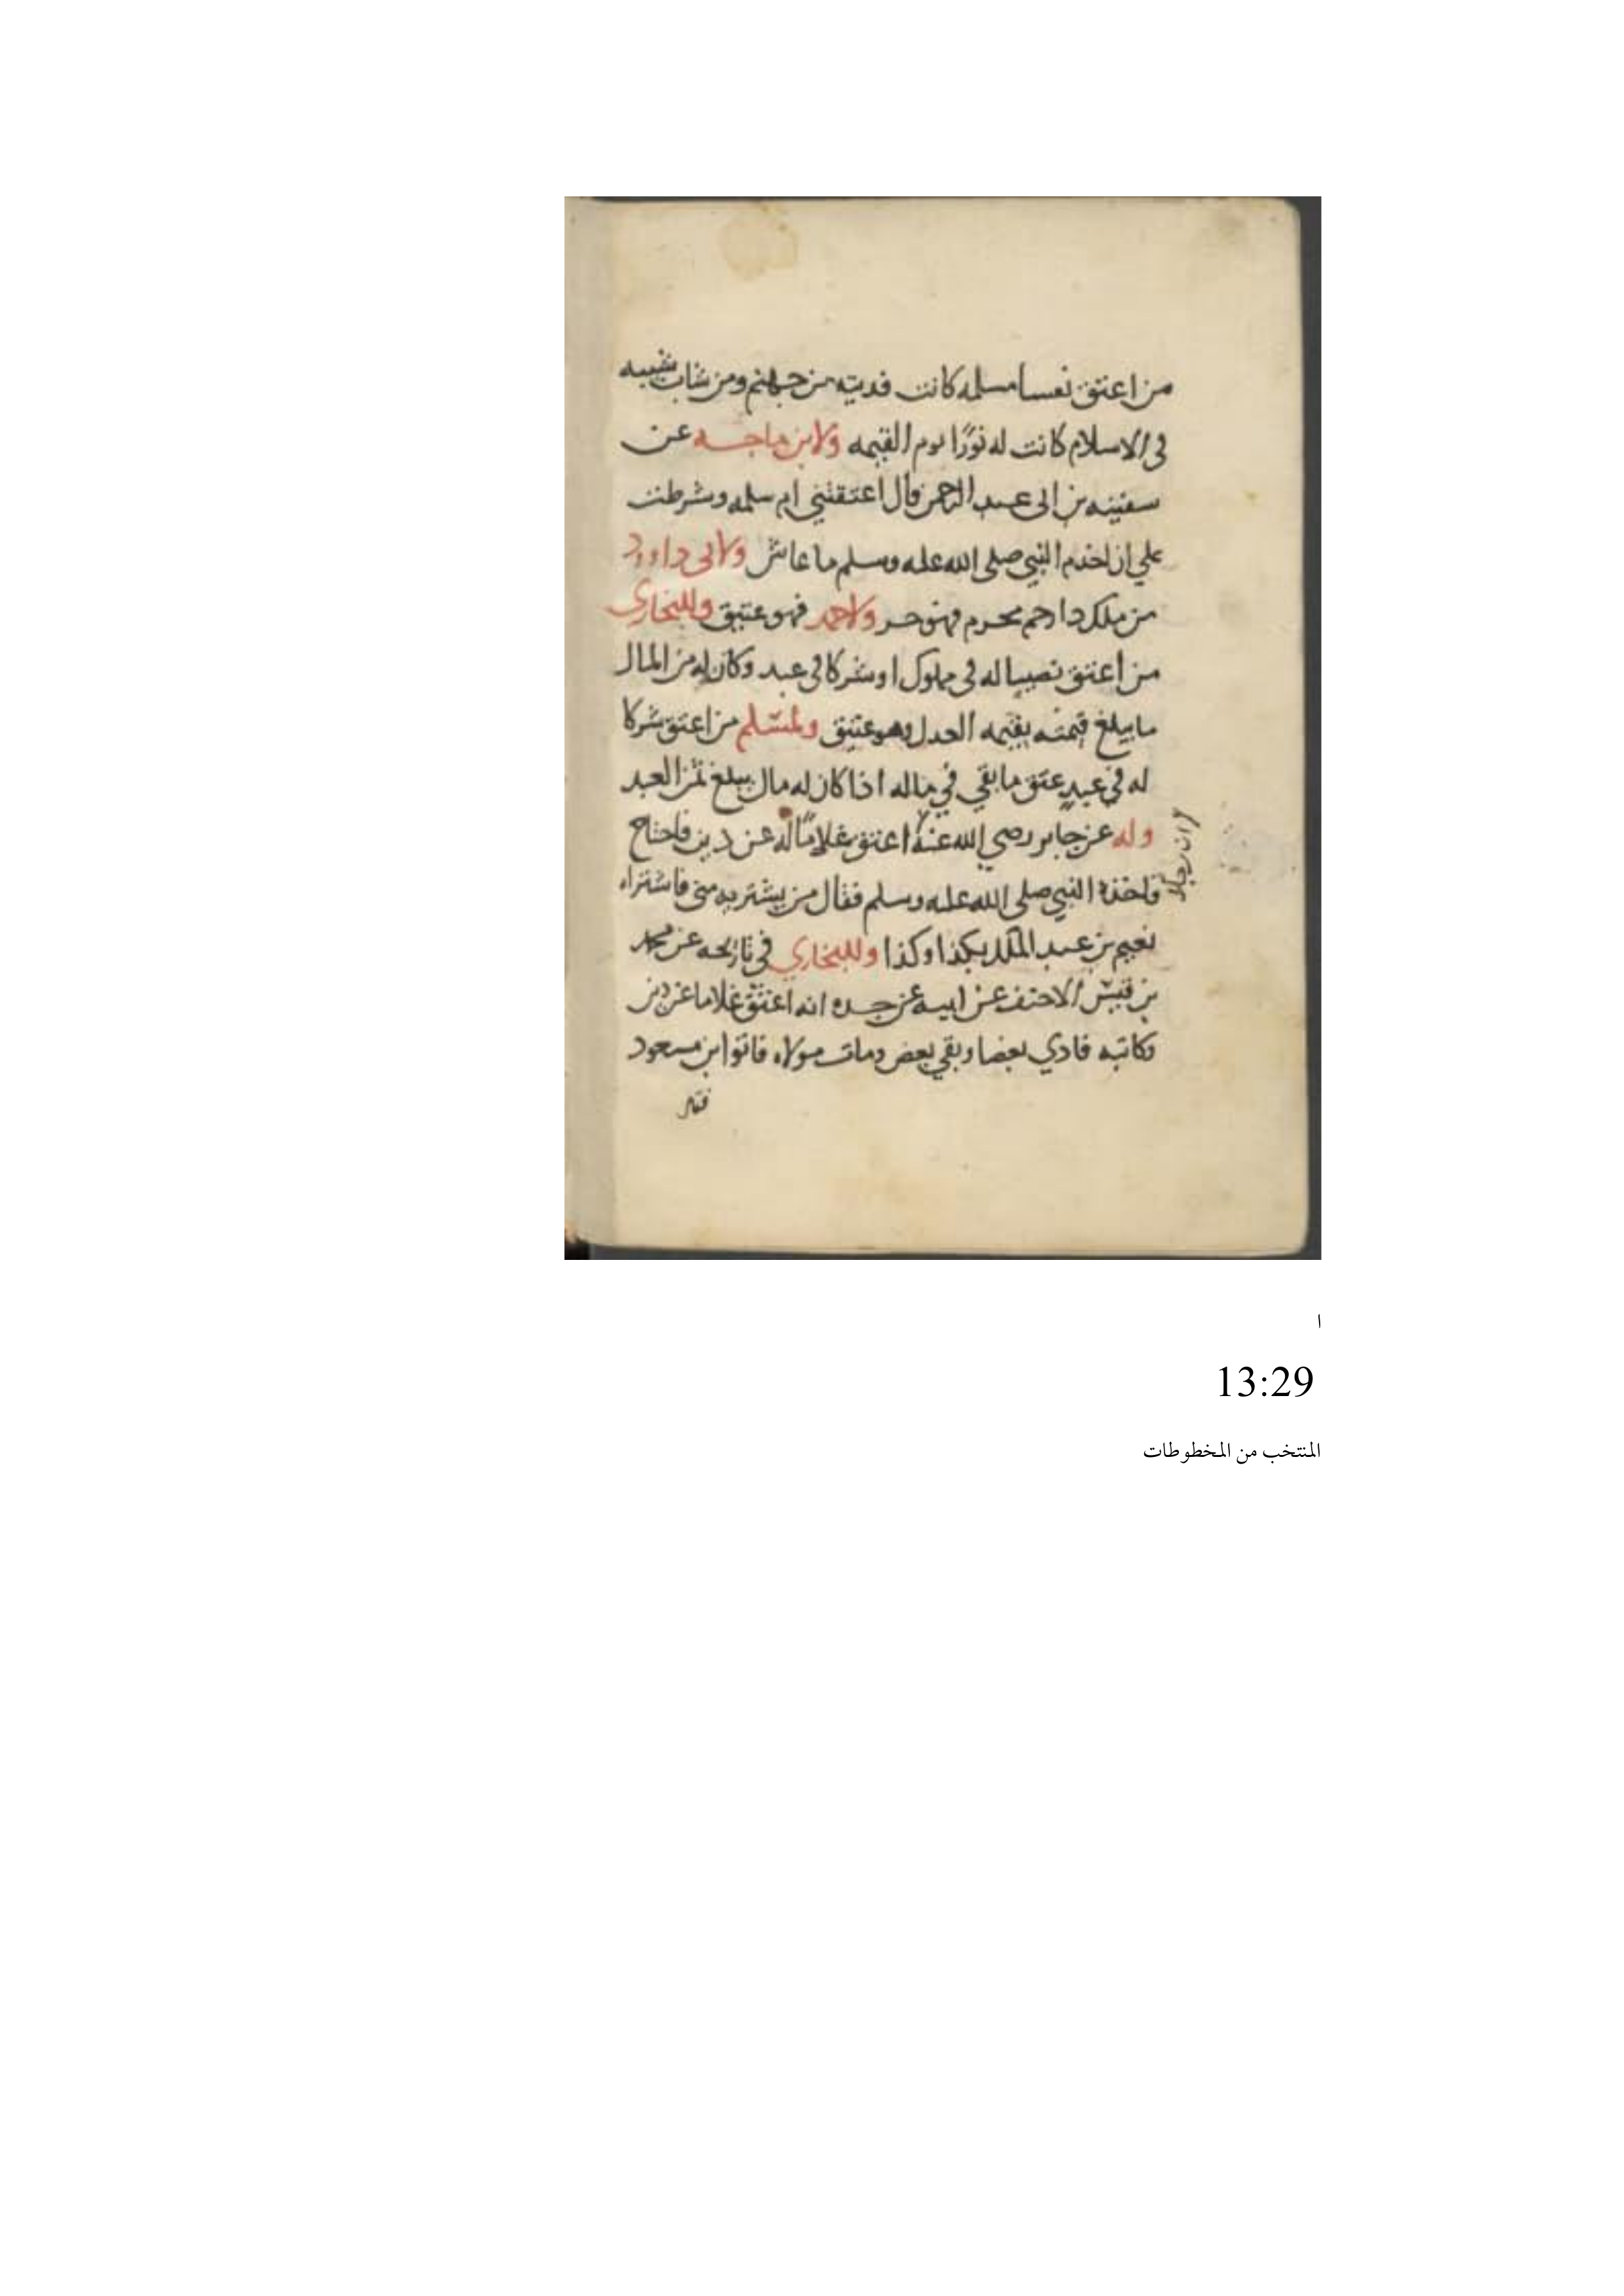 من اعتق نفسا مسلمه كانت فديته من جهنم ومن شاب شيبه
في الاسلام كانت له نورًا يوم القيمه ولابن ماجه عن
سفينه بن ابي عبد الرحمن قال اعتقتني ام سلمه وشرطت
علي ان اخدم النبي صلى الله عليه وسلم ما عاش ولابى داوود
من ملك دا رحم محرم فهو حر ولاحمد فهو عتيق وللبخاري
من اعتق نصيبا له في مملوك او شركا في عبد وكان له من المال
ما يبلغ قيمته بقيمه العدل وهو عتيق ولمسلم من اعتق شركا
له في عبدٍ عتق ما بقي في ماله اذا كان له مال يبلغ ثمن العبد
وله عن جابر رضي الله عنه اعتق غلامًا له عن دبر فاحتاج
ان رجلا
فاخذه النبي صلى الله عليه وسلم فقال من يشتريه مني فاشتراه
نعيم بن عبد الملك بكذا وكذا وللبخاري في تاريخه عن محمد
بن قيس الاحنف عن ابيه عن جده انه اعتق غلاما عن دبر
وكاتبه فادي بعضا وبقي بعض ومات مولاه فاتوا ابن مسعود
ا
13:29
المنتخب من المخطوطات